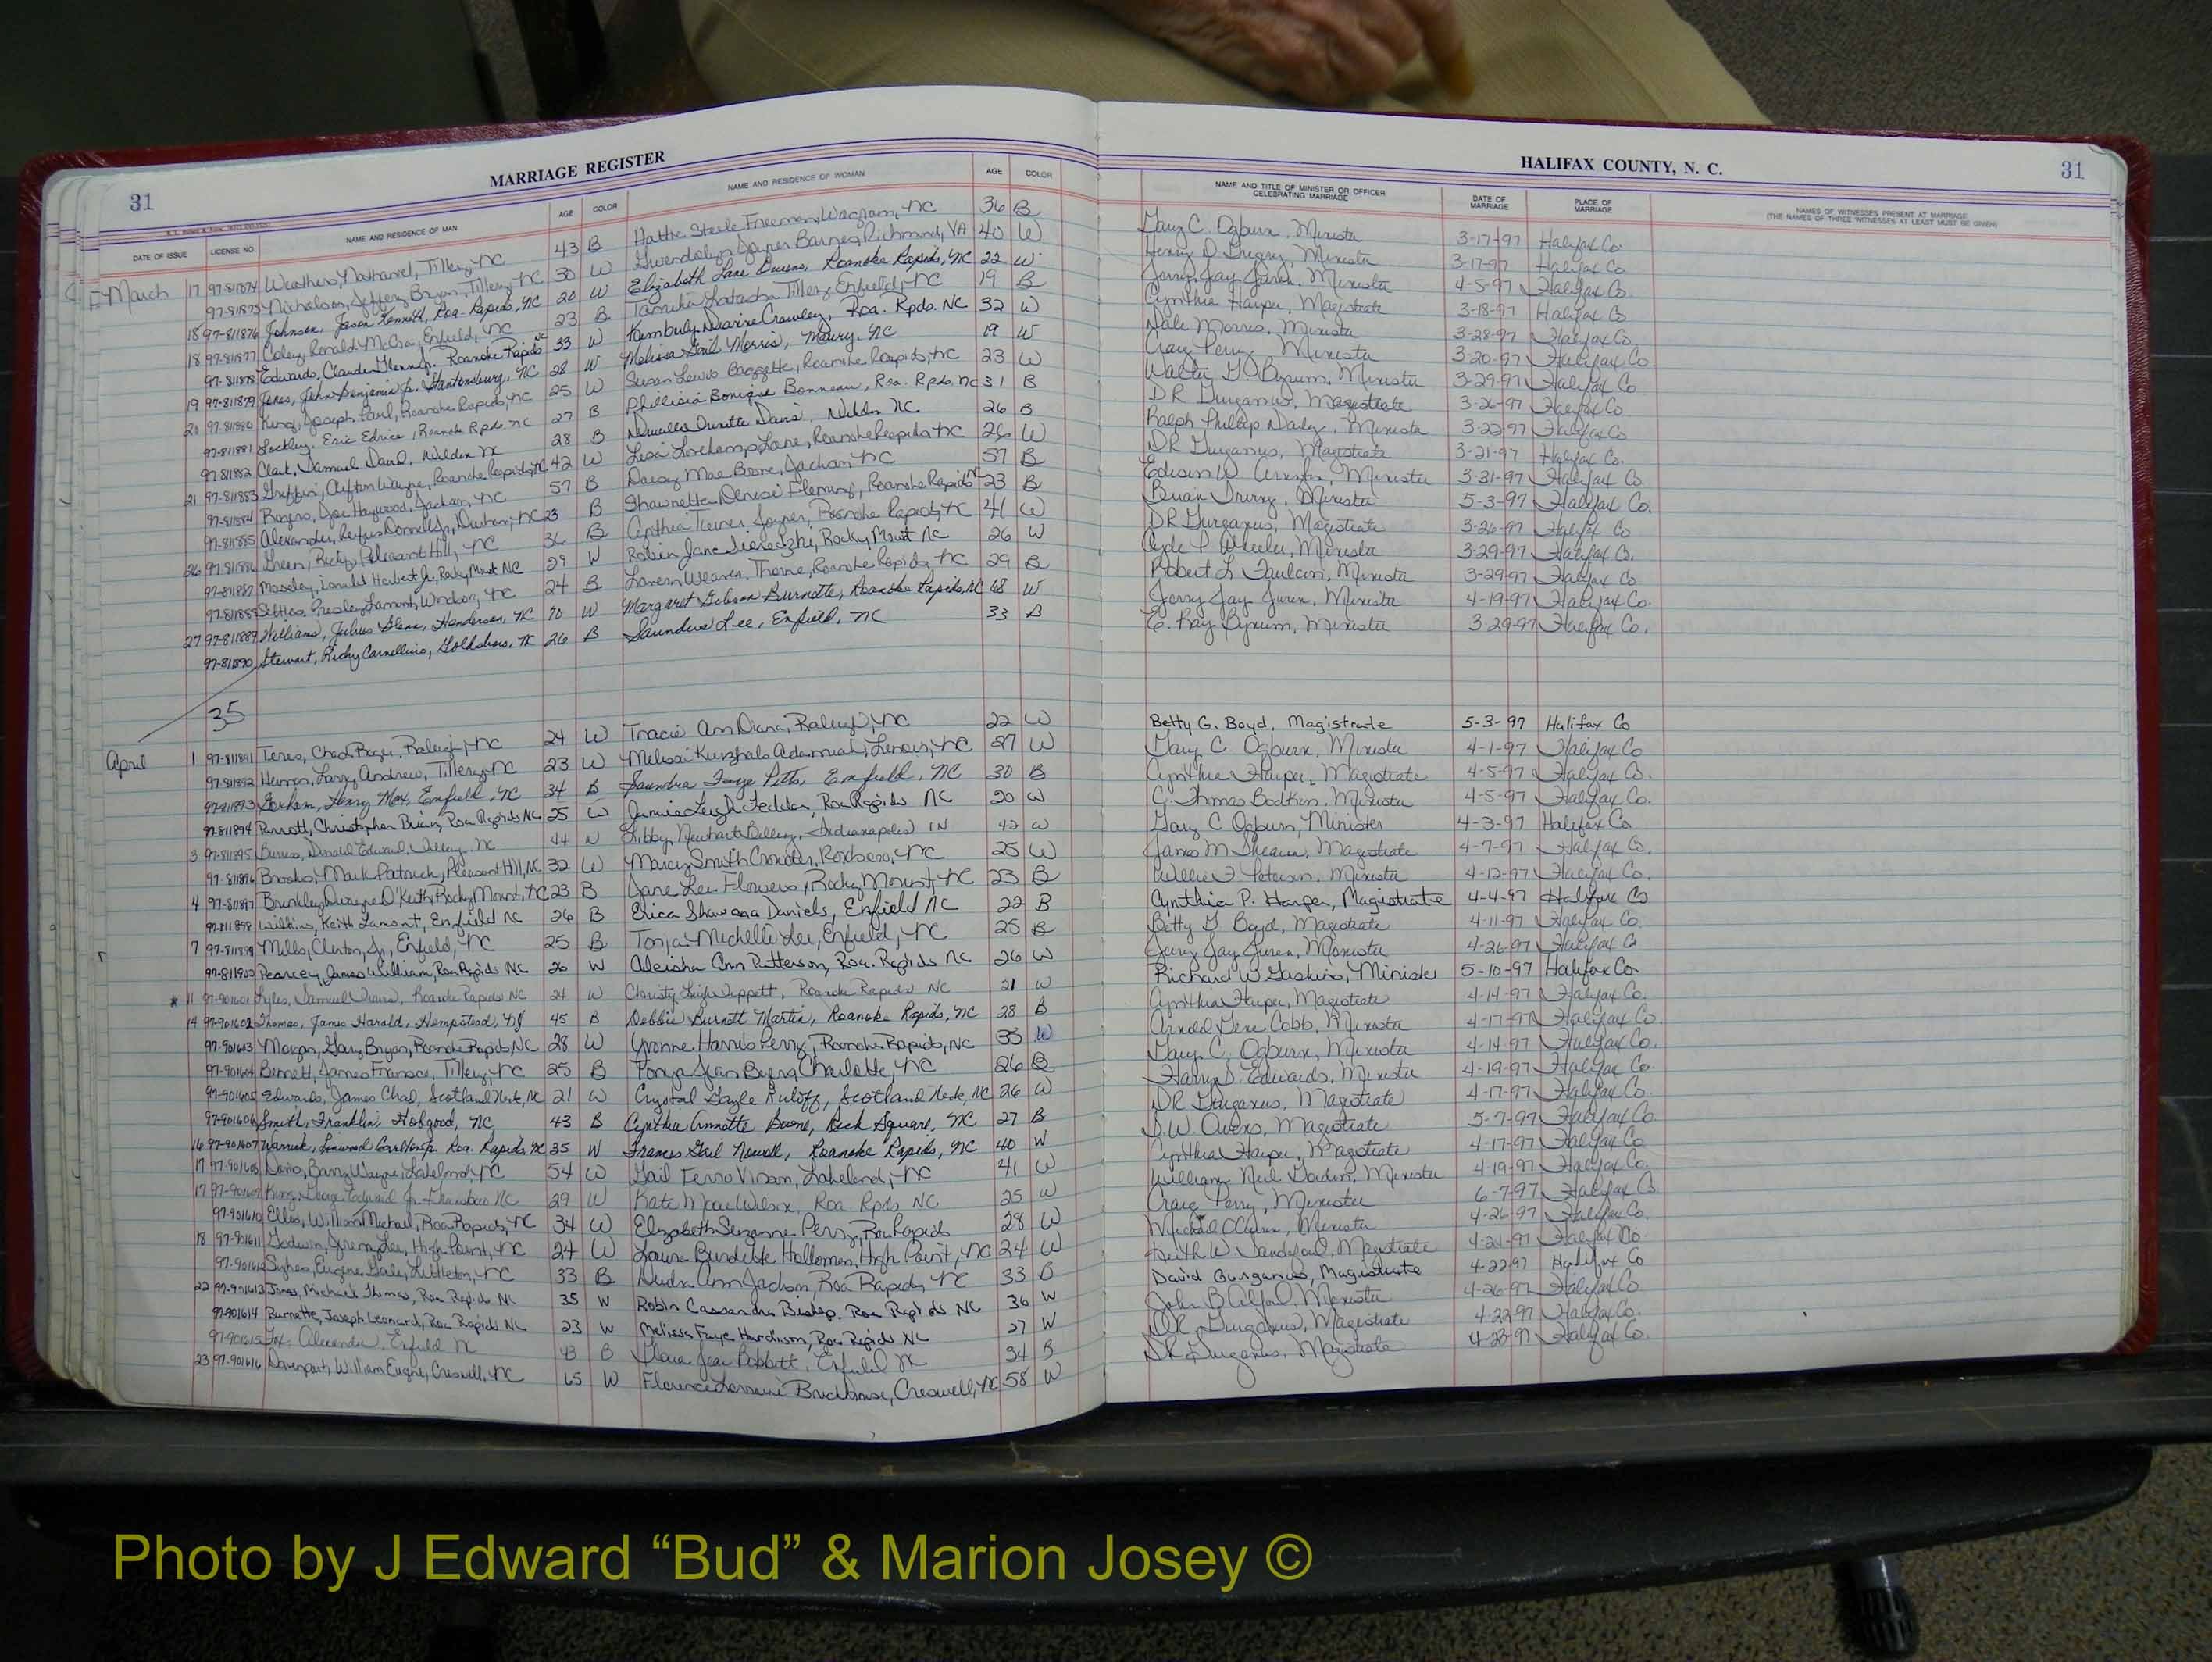 31
MARRIAGE REGISTER
HALIFAX COUNTY, N. C.
31
DATE OF ISSUE LICENSE NO. NAME AND RESIDENCE OF MAN AGE COLOR NAME AND RESIDENCE OF WOMAN AGE COLOR NAME AND TITLE OF MINISTER OR OFFICER CELEBRATING MARRIAGE DATE OF MARRIAGE PLACE OF MARRIAGE NAMES OF WITNESSES PRESENT AT MARRIAGE (THE NAMES OF THREE WITNESSES AT LEAST MUST BE GIVEN)
March 17 97-811874 Weathers, Nathaniel, Tillery, NC 43 B Hattie Steele Freeman, Wagram, NC 36 B Gary C. Ogburn, Minister 3-17-97 Halifax Co.
97-811875 Nicholson, Jeffery Bryan, Tillery NC 30 W Gwendolyn Joyner Barnes, Richmond, VA 40 W Henry D. Gregory, Minister 3-17-97 Halifax Co
18 97-811876 Johnson, Jason Kenneth, Roa. Rapids, NC 20 W Elizabeth Lane Owens, Roanoke Rapids, NC 22 W Jerry Jay Minister 4-5-97 Halifax Co.
18 97-811877 Coley, Ronald McCray, Enfield, NC 23 B Tamika Latasha Tillery, Enfield, NC 19 B Cynthia Harper, Magistrate 3-18-97 Halifax Co
97-811878 Edwards, Claude Glenn Jr. Roanoke Rapids NC 33 W Kimberly Crawley, Roa. Rpds. NC 32 W Dale Morris, Minister 3-28-97 Halifax Co.
19 97-811879 Jones, John Benjamin Jr. Stantonsburg, NC 28 W Melissa Gail Morris, Maury, NC 19 W Craig Perry Minister 3-20-97 Halifax Co
21 97-811880 King, Joseph Paul, Roanoke Rapids, NC 25 W Susan Lewis Roanoke Rapids, NC 23 W Walter G. Byrum, Minister 3-29-97 Halifax Co
97-811881 Lockley, Eric Edrice, Roanoke Rpds NC 27 B Bonique Bonneau, Roa. Rpds. NC 31 B DR Gurganus, Magistrate 3-26-97 Halifax Co
97-811882 Clark, Samuel David, Weldon NC 28 B Davis, Weldon NC 26 B Ralph Phillip Minister 3-22-97 Halifax Co
21 97-811883 Griffin, Wayne, Roanoke Rapids, NC 42 W Lisa Lane, Roanoke Rapids, NC 26 W DR Gurganus, Magistrate 3-21-97 Halifax Co.
97-811884 Rogers, Joe Haywood, Jackson, NC 57 B Daisy Mae Boone, Jackson NC 57 B Edison W. Minister 3-31-97 Halifax Co.
97-811885 Alexander, Rufus Donnell Jr, Durham, NC 23 B Shawnette Denise Fleming, Roanoke Rapids NC 23 B Brian Minister 5-3-97 Halifax Co.
26 97-811886 Green, Ricky, Pleasant Hill, NC 36 B Cynthia Joyner, Roanoke Rapids, NC 41 W DR Gurganus, Magistrate 3-26-97 Halifax Co
97-811887 Moseley, Herbert Jr, Rocky Mount NC 29 W Robin Jane Rocky Mount NC 26 W Clyde P. Wheeler, Minister 3-29-97 Halifax Co.
97-811888 Presley Lamont, Windsor, NC 24 B Weaver Thorne, Roanoke Rapids, NC 29 B Robert L. Faulcon, Minister 3-29-97 Halifax Co
27 97-811889 Williams, Julius Glenn, Henderson, NC 70 W Margaret Gibson Burnette, Roanoke Rapids, NC 68 W Jerry Jay Minister 4-19-97 Halifax Co.
97-811890 Stewart, Ricky Goldsboro, NC 26 B Saundra Lee, Enfield, NC 33 B E. Ray Byrum, Minister 3-29-97 Halifax Co.
35
April 1 97-811891 Chad Raleigh, NC 24 W Tracie Ann Diana, Raleigh, NC 22 W Betty G. Boyd, Magistrate 5-3-97 Halifax Co
97-811892 Larry Andrew, Tillery, NC 23 W Melissa Lenoir, NC 27 W Gary C. Ogburn, Minister 4-1-97 Halifax Co
97-811893 Gorham, Henry Max, Enfield, NC 34 B Saundra Faye Pitts, Enfield, NC 30 B Cynthia Harper, Magistrate 4-5-97 Halifax Co.
97-811894 Parrott, Christopher Brian, Roa Rapids NC 25 W Jamie Leigh Roa Rapids NC 20 W C. Thomas Bodkin, Minister 4-5-97 Halifax Co.
3 97-811895 Donald Edward, NC 44 W Libby Indianapolis IN 42 W Gary C Ogburn, Minister 4-3-97 Halifax Co
97-811896 Brooks, Mark Patrick, Pleasant Hill, NC 32 W Marcy Smith Crowder, Roxboro, NC 25 W James M. Magistrate 4-7-97 Halifax Co.
4 97-811897 Brinkley, Dwayne O'Keith, Rocky Mount, NC 23 B Jane Lee Flowers, Rocky Mount, NC 23 B Willie Minister 4-12-97 Halifax Co.
97-811898 Wilkins, Keith Lamont, Enfield NC 26 B Erica Shawana Daniels, Enfield NC 22 B Cynthia P. Harper, Magistrate 4-4-97 Halifax Co
7 97-811899 Mills, Clinton, Jr., Enfield, NC 25 B Tonja Michelle Lee, Enfield, NC 25 B Betty G. Boyd, Magistrate 4-11-97 Halifax Co.
97-811900 Pearcey, James William, Roa Rapids NC 20 W Aleisha Ann Patterson, Roa. Rapids NC 26 W Jerry Jay Minister 4-26-97 Halifax Co
* 11 97-901601 Lyles, Samuel Roanoke Rapids NC 24 W Christy Leigh Tippett, Roanoke Rapids NC 21 W Richard W. Gaskins, Minister 5-10-97 Halifax Co
14 97-901602 Thomas, James Harald, Hempstead, NY 45 B Debbie Burnett Martin, Roanoke Rapids, NC 28 B Cynthia Harper, Magistrate 4-14-97 Halifax Co.
97-901603 Morgan, Gary Bryan, Roanoke Rapids, NC 28 W Yvonne Harris Perry, Roanoke Rapids, NC 35 W Arnold Gene Cobb, Minister 4-17-97 Halifax Co.
97-901604 Bennett, James Tillery, NC 25 B Tonya Jean Charlotte, NC 26 B Gary C. Ogburn, Minister 4-14-97 Halifax Co.
97-901605 Edwards, James Chad, Scotland Neck, NC 21 W Crystal Gayle Scotland Neck, NC 26 W Harry D. Edwards, Minister 4-19-97 Halifax Co.
97-901606 Smith, Franklin, Hobgood, NC 43 B Cynthia Annette Boone, Rich Square, NC 27 B DR Gurganus, Magistrate 4-17-97 Halifax Co.
16 97-901607 Warrick, Linwood Carlton Jr. Roa. Rapids NC 35 W Frances Gail Nowell, Roanoke Rapids, NC 40 W S.W. Owens, Magistrate 5-7-97 Halifax Co.
17 97-901608 Davis, Barry Wayne, Lakeland, NC 54 W Gail Ferro Vinson, Lakeland, NC 41 W Cynthia Harper, Magistrate 4-17-97 Halifax Co
17 97-901609 King, George Jr. NC 29 W Kate Roa Rpds NC 25 W William Neil Minister 4-19-97 Halifax Co.
97-901610 Ellis, William Michael, Roa Rapids, NC 34 W Elizabeth Suzanne Perry, Roa Rapids 28 W Craig Perry, Minister 6-7-97 Halifax Co
18 97-901611 Godwin, Jeremy Lee, High Point, NC 24 W Laura Burdette Holloman, High Point, NC 24 W Michael Minister 4-26-97 Halifax Co.
97-901612 Sykes, Eugene Littleton, NC 33 B Ann Jackson, Roa Rapids, NC 33 B Keith W. Magistrate 4-21-97 Halifax Co
22 97-901613 Jones, Michael Thomas, Roa Rapids NC 35 W Robin Cassandra Bishop, Roa Rapids NC 36 W David Gurganus, Magistrate 4-22-97 Halifax Co
97-901614 Burnette, Joseph Leonard, Roa Rapids NC 23 W Melissa Faye Hardison, Roa Rapids NC 27 W John B. Alford, Minister 4-26-97 Halifax Co.
97-901615 Alexander, Enfield NC 43 B Jean Enfield NC 34 B DR Gurganus, Magistrate 4-22-97 Halifax Co.
23 97-901616 Davenport, William Eugene, Creswell, NC 65 W Florence Lorraine Brickhouse, Creswell, NC 58 W DR Gurganus, Magistrate 4-23-97 Halifax Co.
Photo by J Edward “Bud” & Marion Josey ©